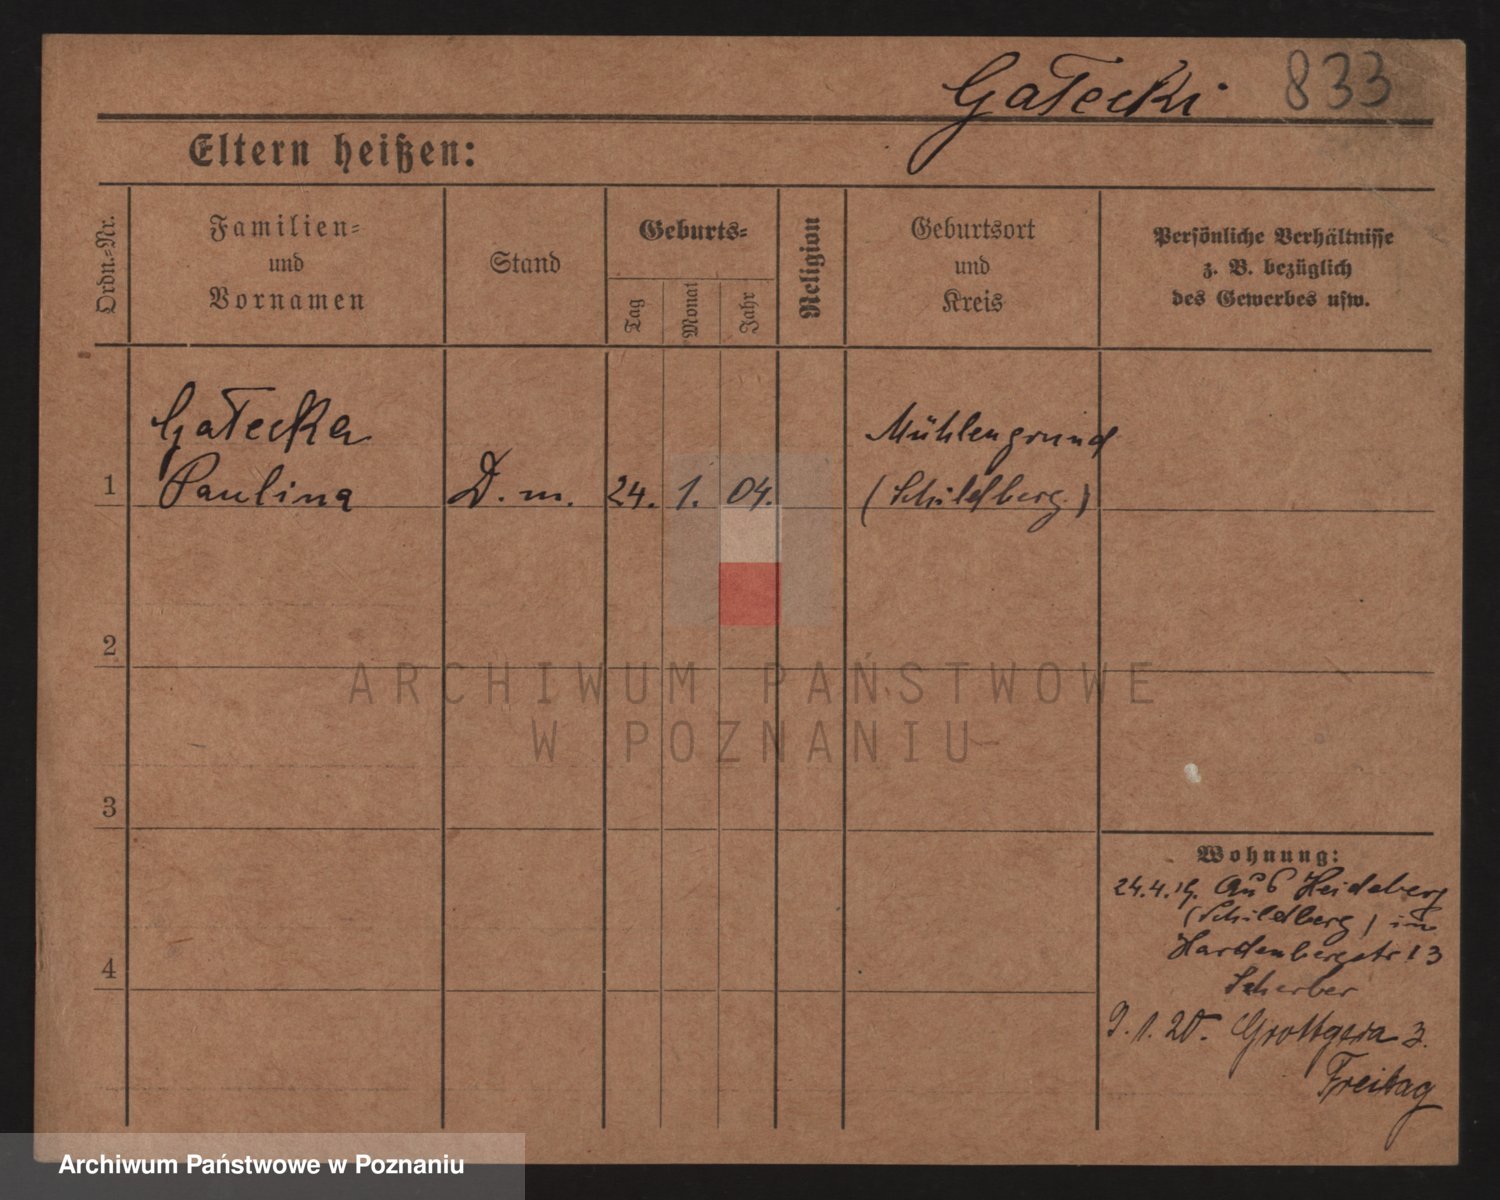 Gałecki 833
Eltern heißen:
Ordn.-Nr.
Familien-
und
Vornamen
Stand
Geburts-
Tag
Monat
Jahr
Religion
Geburtsort
und
Kreis
Persönliche Verhältnisse
z. B. bezüglich
des Gewerbes usw.
Gałecka
Paulina
1
D. m.
24. 1. 04.
Mühlengrund
(Schildberg.)
2
3
4
ARCHIWUM PAŃSTWOWE
W POZNANIU
Wohnung:
24.4.19. aus Heideberg
(Schildberg) in
Hardenbergstr 13
Scherber
9.1.20. Grottgera 3.
Freitag
Archiwum Państwowe w Poznaniu